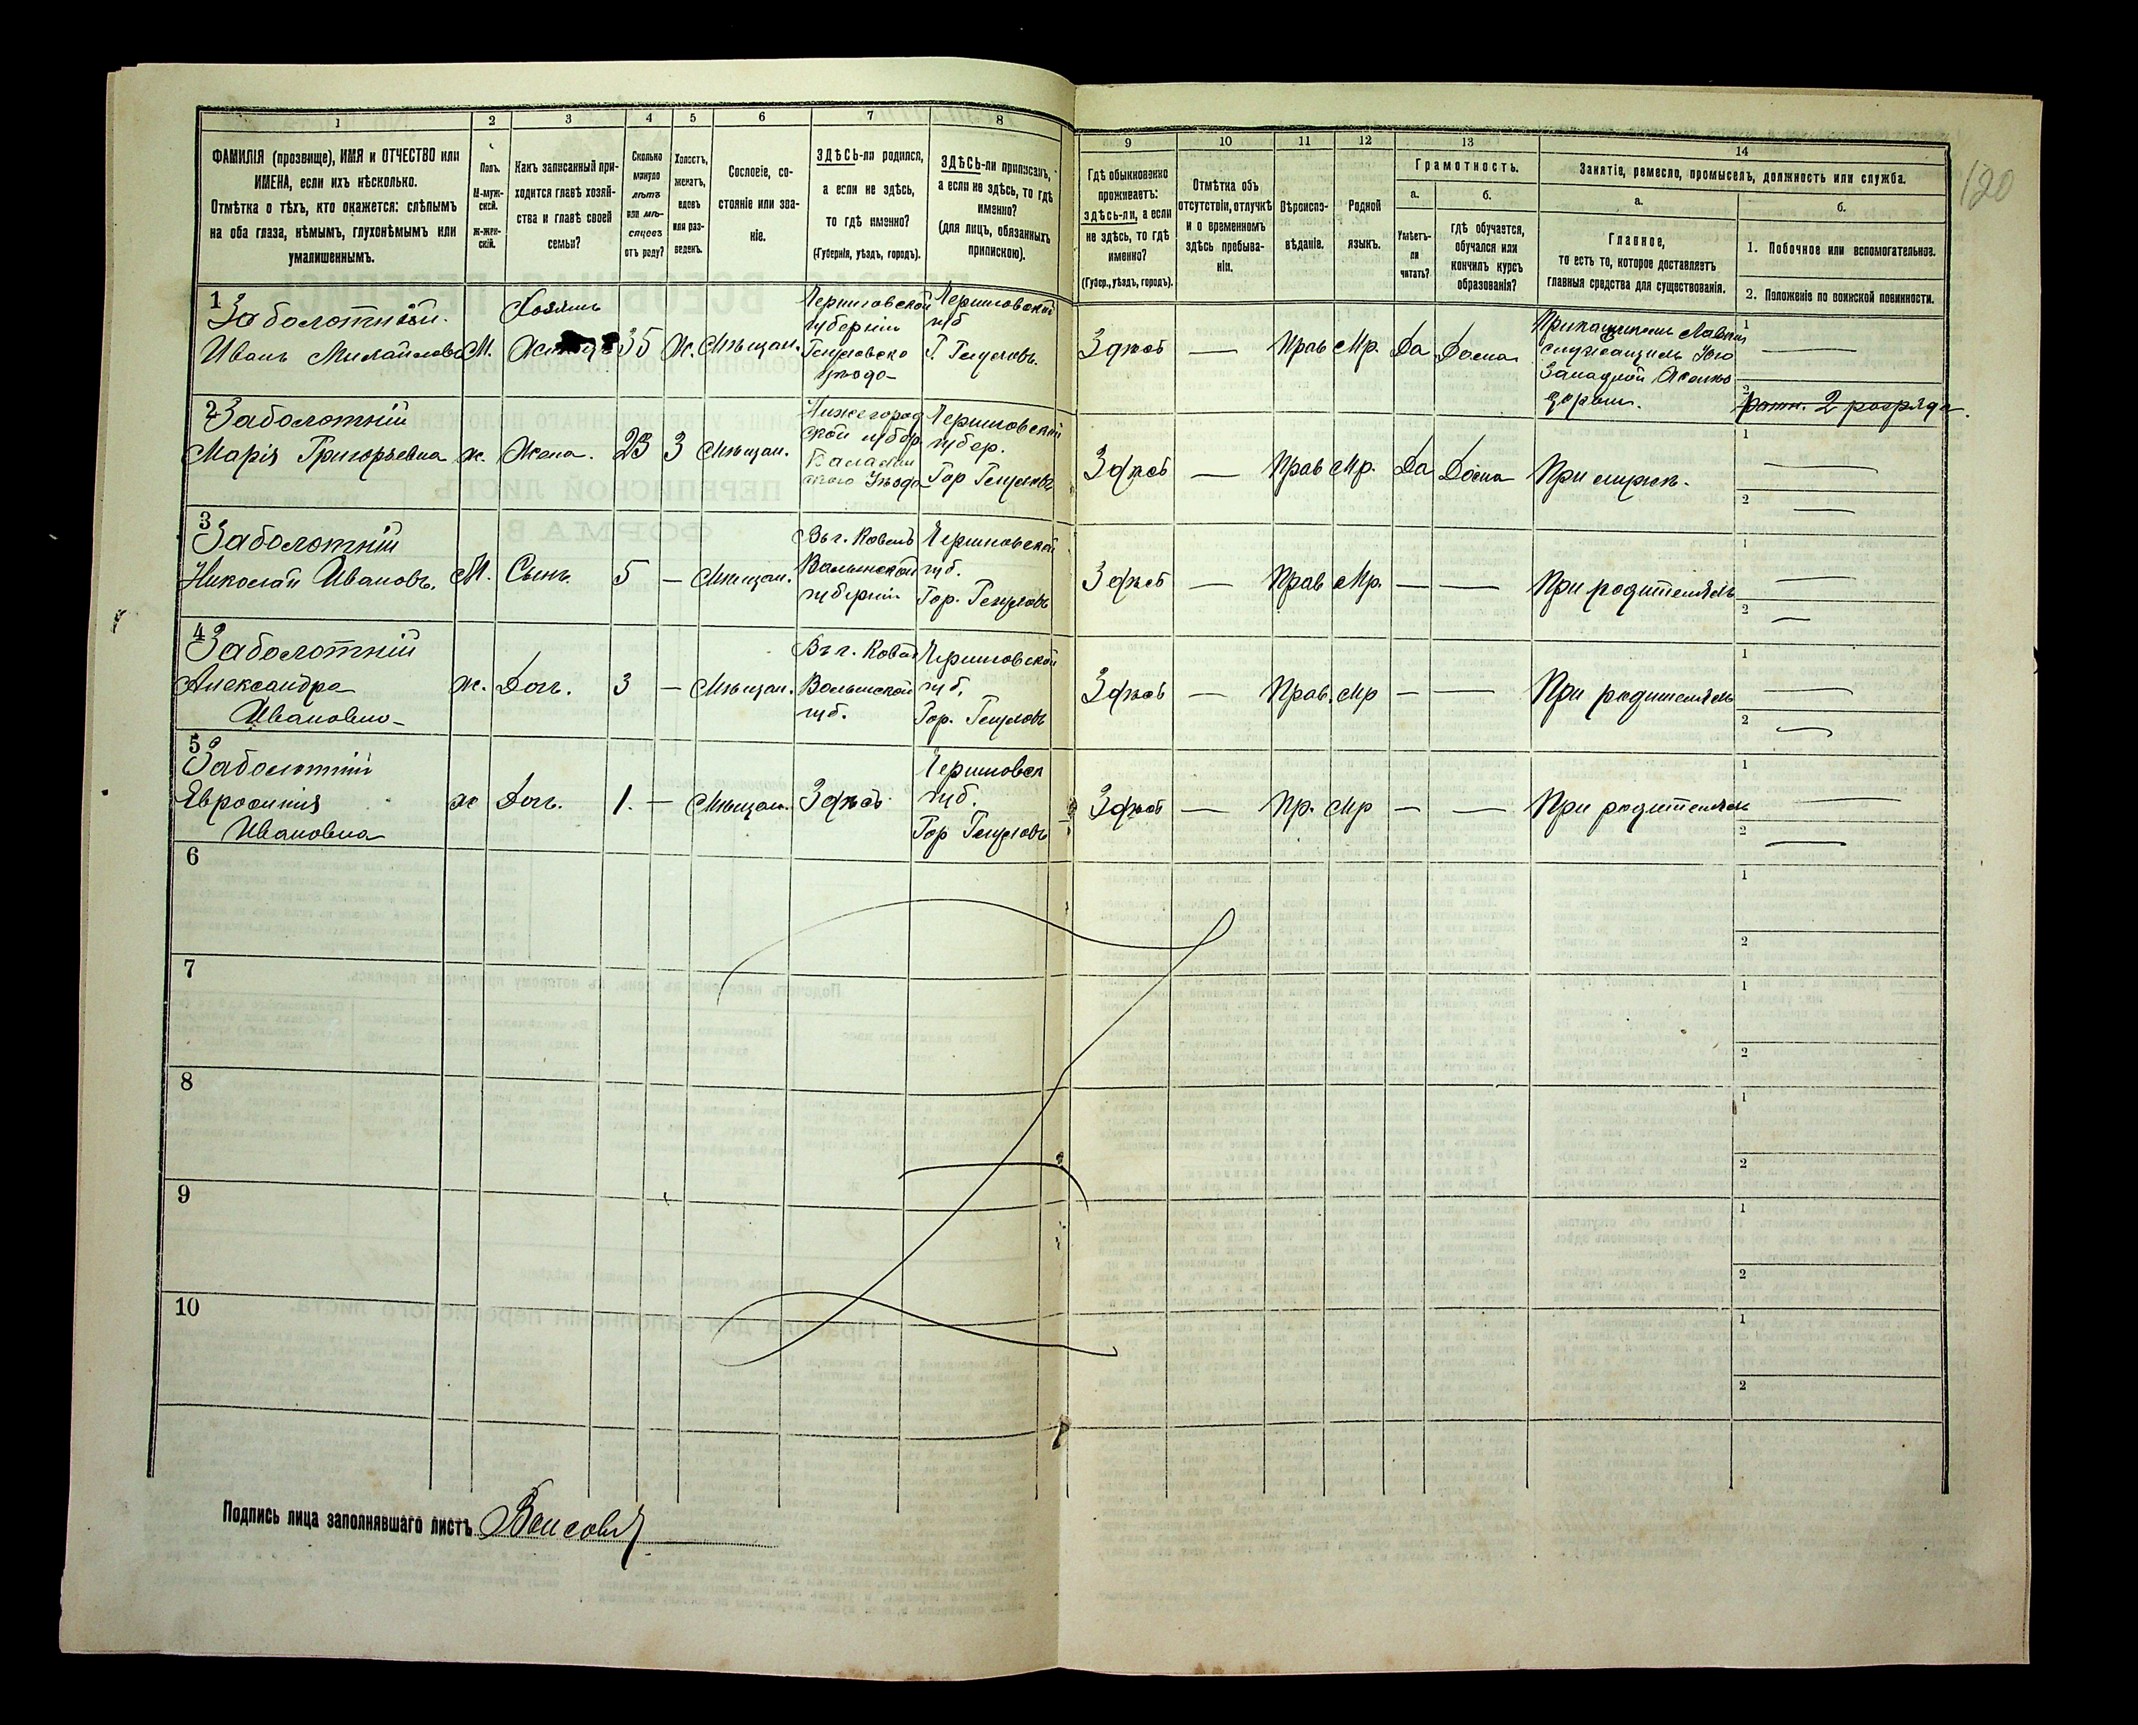 1
2
3
4
5
6
7
8
ФАМИЛІЯ (прозвище), ИМЯ и ОТЧЕСТВО или
ИМЕНА, если ихъ нѣсколько.
Отмѣтка о тѣхъ, кто окажется: слѣпымъ
на оба глаза, нѣмымъ, глухонѣмымъ или
умалишеннымъ.
Полъ.
М-муж-
ской.
Ж-жен-
скій.
Какъ записанный при-
ходится главѣ хозяй-
ства и главѣ своей
семьи?
Сколько
минуло
лѣтъ
или мѣ-
сяцевъ
отъ роду?
Холостъ,
женатъ,
вдовъ
или раз-
веденъ.
Сословіе, со-
стояніе или зва-
ніе.
ЗДѢСЬ-ли родился,
а если не здѣсь,
то гдѣ именно?
(Губернія, уѣздъ, городъ).
ЗДѢСЬ-ли приписанъ,
а если не здѣсь, то гдѣ
именно?
(для лицъ, обязанныхъ
припискою).
9
10
11
12
13
14
Гдѣ обыкновенно
проживаетъ:
здѣсь-ли, а если
не здѣсь, то гдѣ
именно?
(Губер., уѣздъ, городъ).
Отмѣтка объ
отсутствіи, отлучкѣ
и о временномъ
здѣсь пребыва-
ніи.
Вѣроиспо-
вѣданіе.
Родной
языкъ.
Грамотность.
а.
б.
Умѣетъ-
ли
читать?
гдѣ обучается,
обучался или
кончилъ курсъ
образованія?
Занятіе, ремесло, промыселъ, должность или служба.
а.
б.
Главное,
то есть то, которое доставляетъ
главныя средства для существованія.
1. Побочное или вспомогательное.
2. Положеніе по воинской повинности.
120
1
Заболотній.
Иванъ Михайловъ
М.
Хозяинъ
35
Ж.
Мѣщан.
Черниговской
губерніи
уѣзда
Черниговской
губ
Г.
Здѣсь
—
Прав
Мр.
Да
Дома
Западной
1
—
2
ратн. 2 разряда.
2
Заболотній
Марія Григорьевна
ж.
Жена.
23
З
Мѣщан.
Нижегород
ской губер
уѣзда
Черниговской
губер.
Гор
Здѣсь
—
Прав
Мр.
Да
Дома
При мужѣ.
1
—
2
—
3
Заболотній
Николай Ивановъ.
М.
Сынъ.
5
—
Мѣщан.
Въ г. Ковелѣ
Волынской
губерніи
Черниговской
губ.
Гор.
Здѣсь
—
Прав
Мр.
—
—
При родителяхъ
1
—
2
—
4
Заболотній
Александра
Ивановна
ж.
Доч.
3
—
Мѣщан.
Въ г. Ковел
Волынской
губ.
Черниговской
губ.
Гор.
Здѣсь
—
Прав.
Мр
—
—
При родителяхъ
1
—
2
—
5
Заболотній
Евросинія
Ивановна
ж
Доч.
1.
—
Мѣщан.
Здѣсь
Черниговск
губ.
Гор
Здѣсь
—
Пр.
Мр
—
—
При родителяхъ
1
—
2
—
6
1
2
7
1
2
8
1
2
9
1
2
10
1
2
Подпись лица заполнявшаго листъ